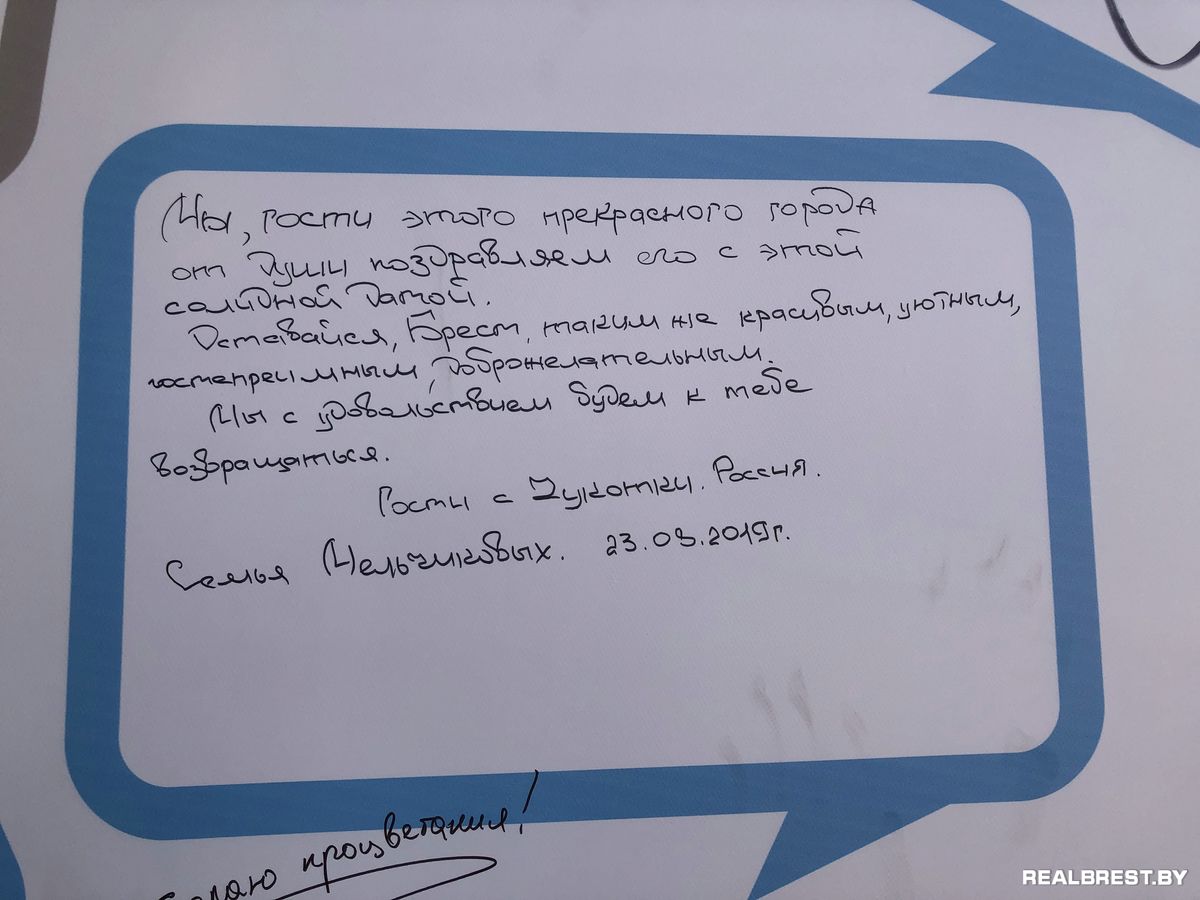 Мы, гости этого прекрасного города
от души поздравляем его с этой
солидной датой.
Оставайся, Брест, таким же красивым, уютным,
гостепреимным, доброжелательным.
Мы с удовольствием будем к тебе
возвращаться.
Гости с Чукотки. Россия.
Семья Мельчиковых. 23.08.2019г.
процветания!
REALBREST.BY